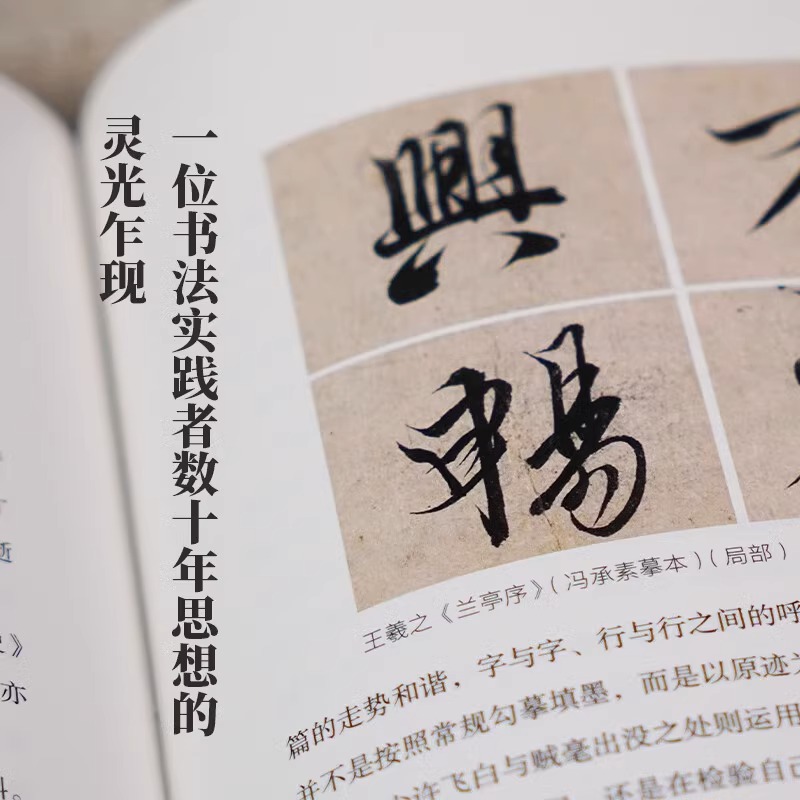 一位书法实践者数十年思想的
灵光乍现
興
暢
王羲之《兰亭序》（冯承素摹本）（局部）
篇的走势和谐，字与字、行与行之间的呼
并不是按照常规勾摹填墨，而是以原迹为
许飞白与贼毫出没之处则运用
还是在检验自己
》
亦